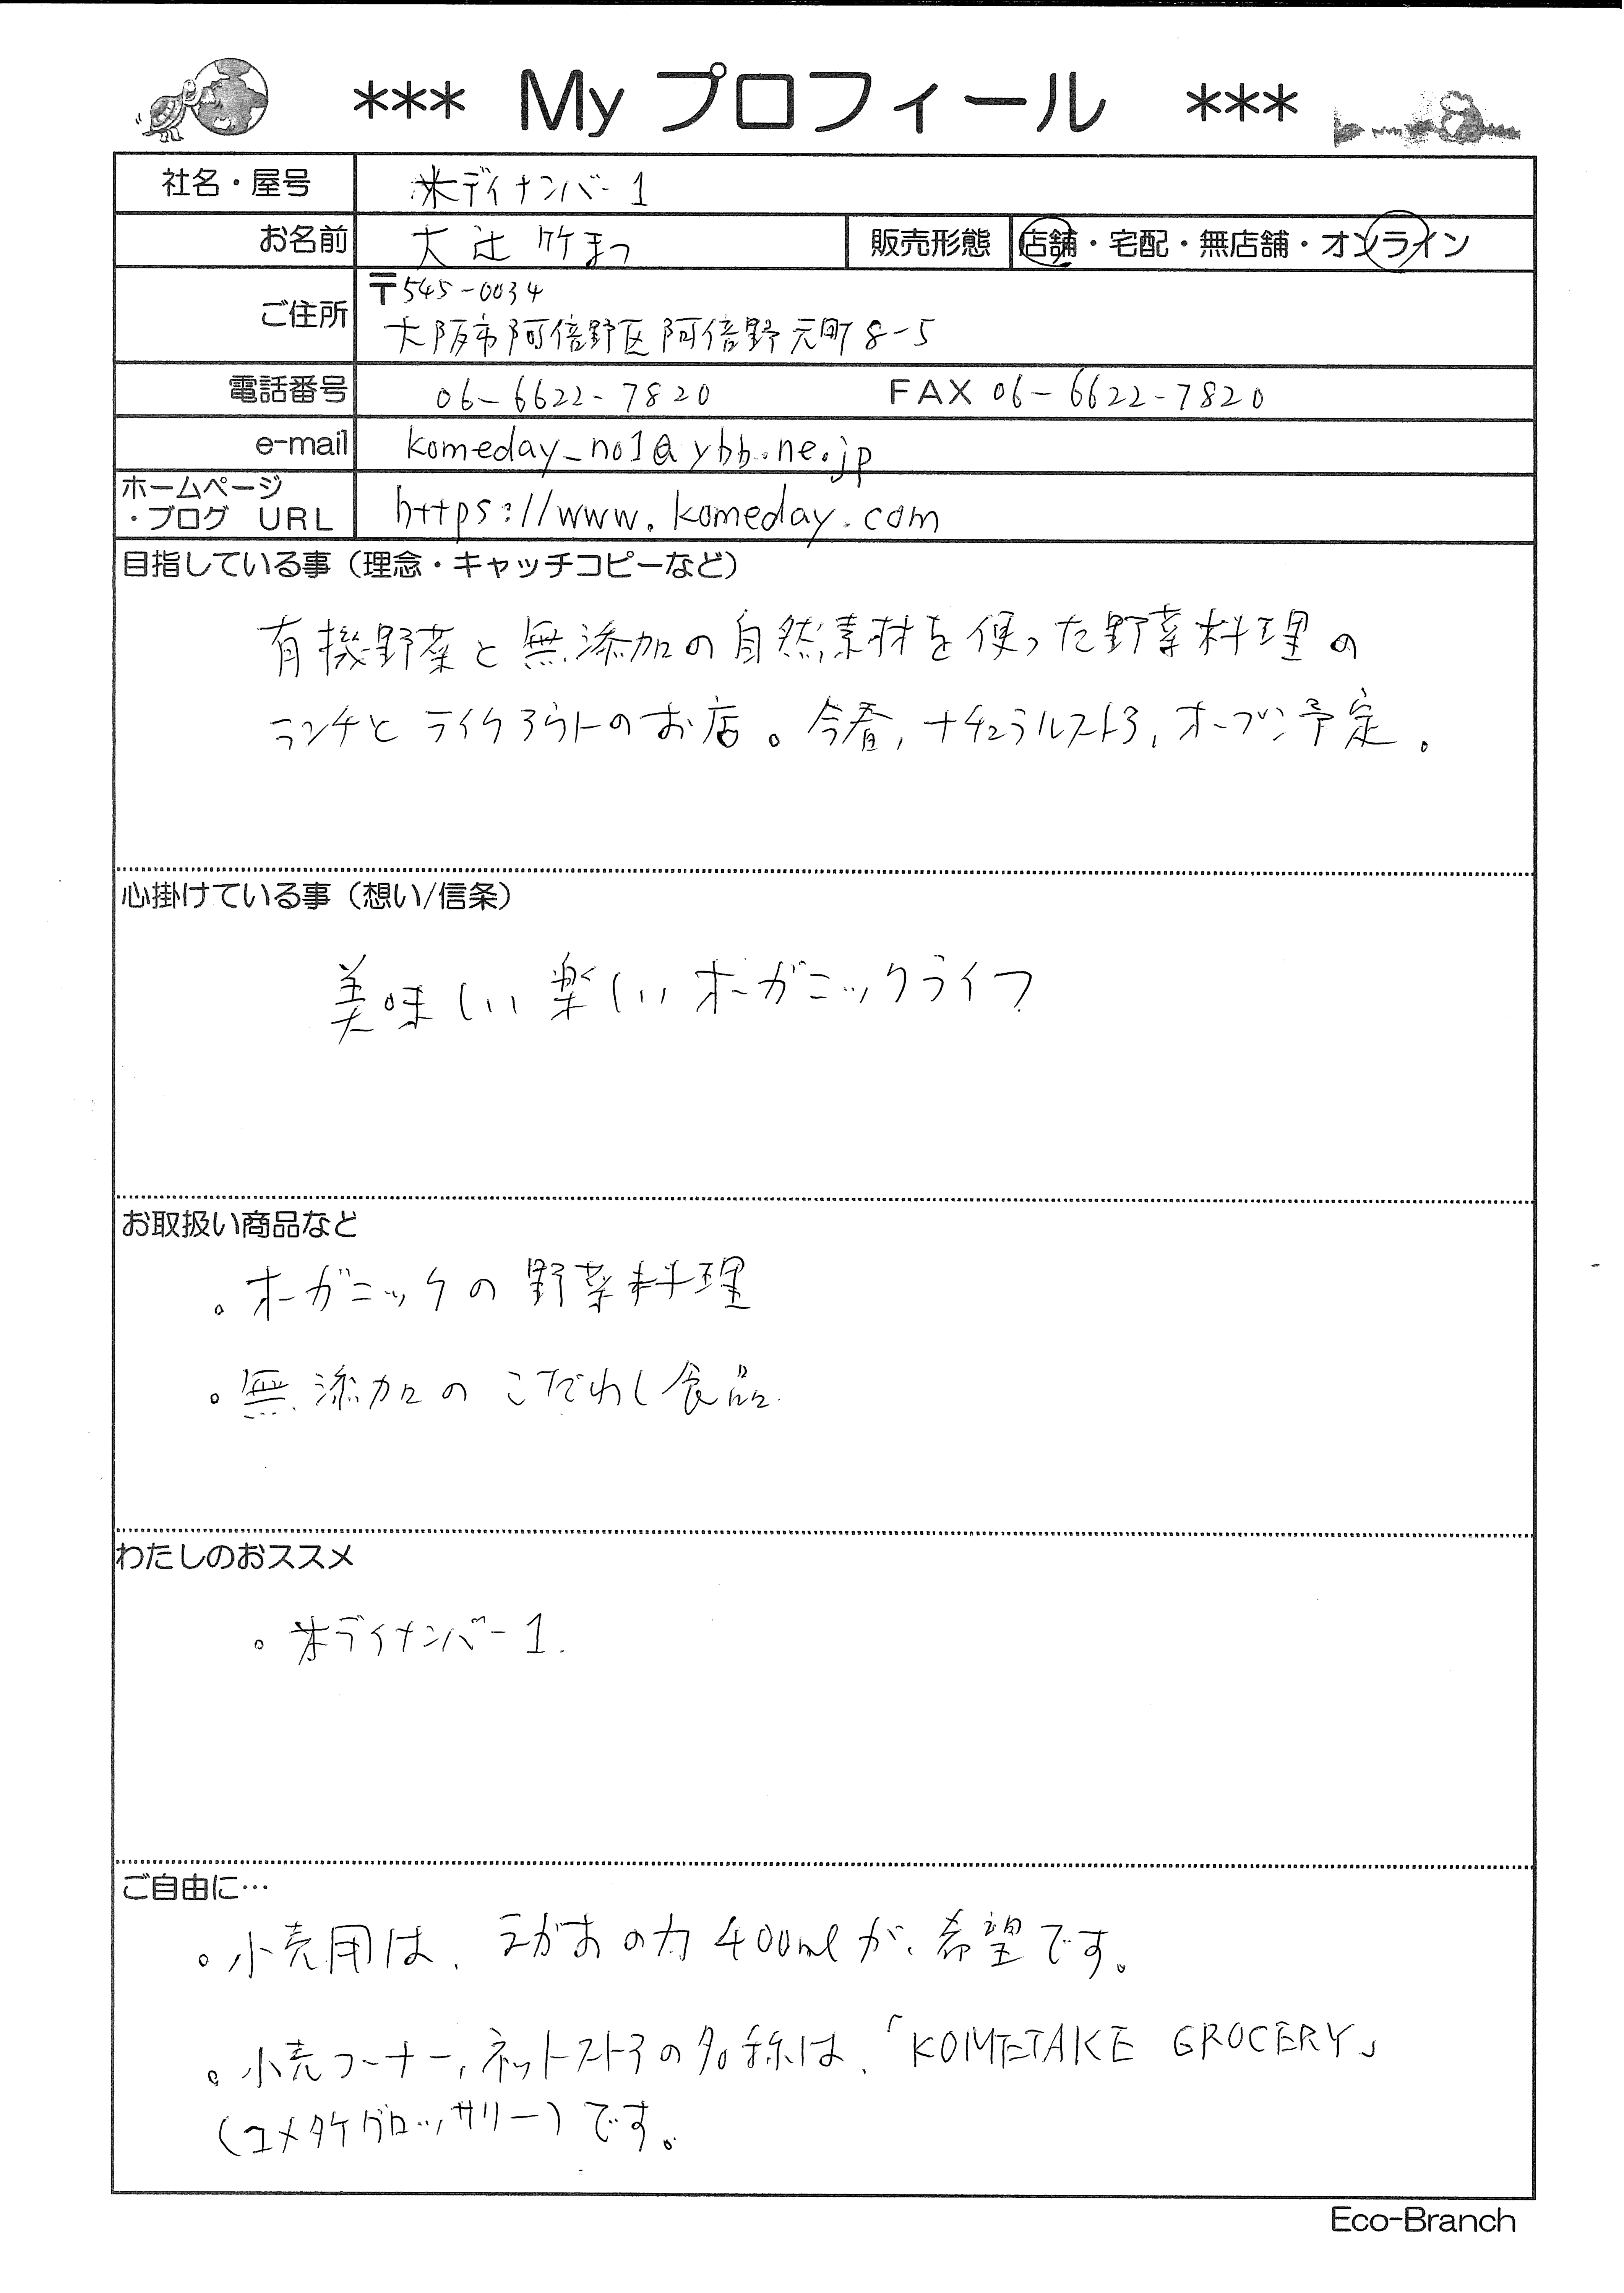 *** My プロフィール ***
社名・屋号 米ディナンバー1
お名前 大辻 竹まつ 販売形態 店舗・宅配・無店舗・オンライン
ご住所 〒545-0034
大阪市阿倍野区阿倍野元町8-5
電話番号 06-6622-7820 FAX 06-6622-7820
e-mail komeday_no1@ybb.ne.jp
ホームページ
・ブログ URL https://www.komeday.com
目指している事（理念・キャッチコピーなど）
有機野菜と無添加の自然素材を使った野菜料理の
ランチとテイクアウトのお店。今春,ナチュラルストア,オープン予定。
心掛けている事（想い/信条）
美味しい楽しいオーガニックライフ
お取扱い商品など
。オーガニックの野菜料理
。無添加のこだわし食品
わたしのおススメ
。米デイナンバー1.
ご自由に…
。小売用は、えがおの力400mlが、希望です。
。小売コーナー,ネットストアの名称は、「KOMETAKE GROCERY」
(コメタケグロッサリー)です。
Eco-Branch